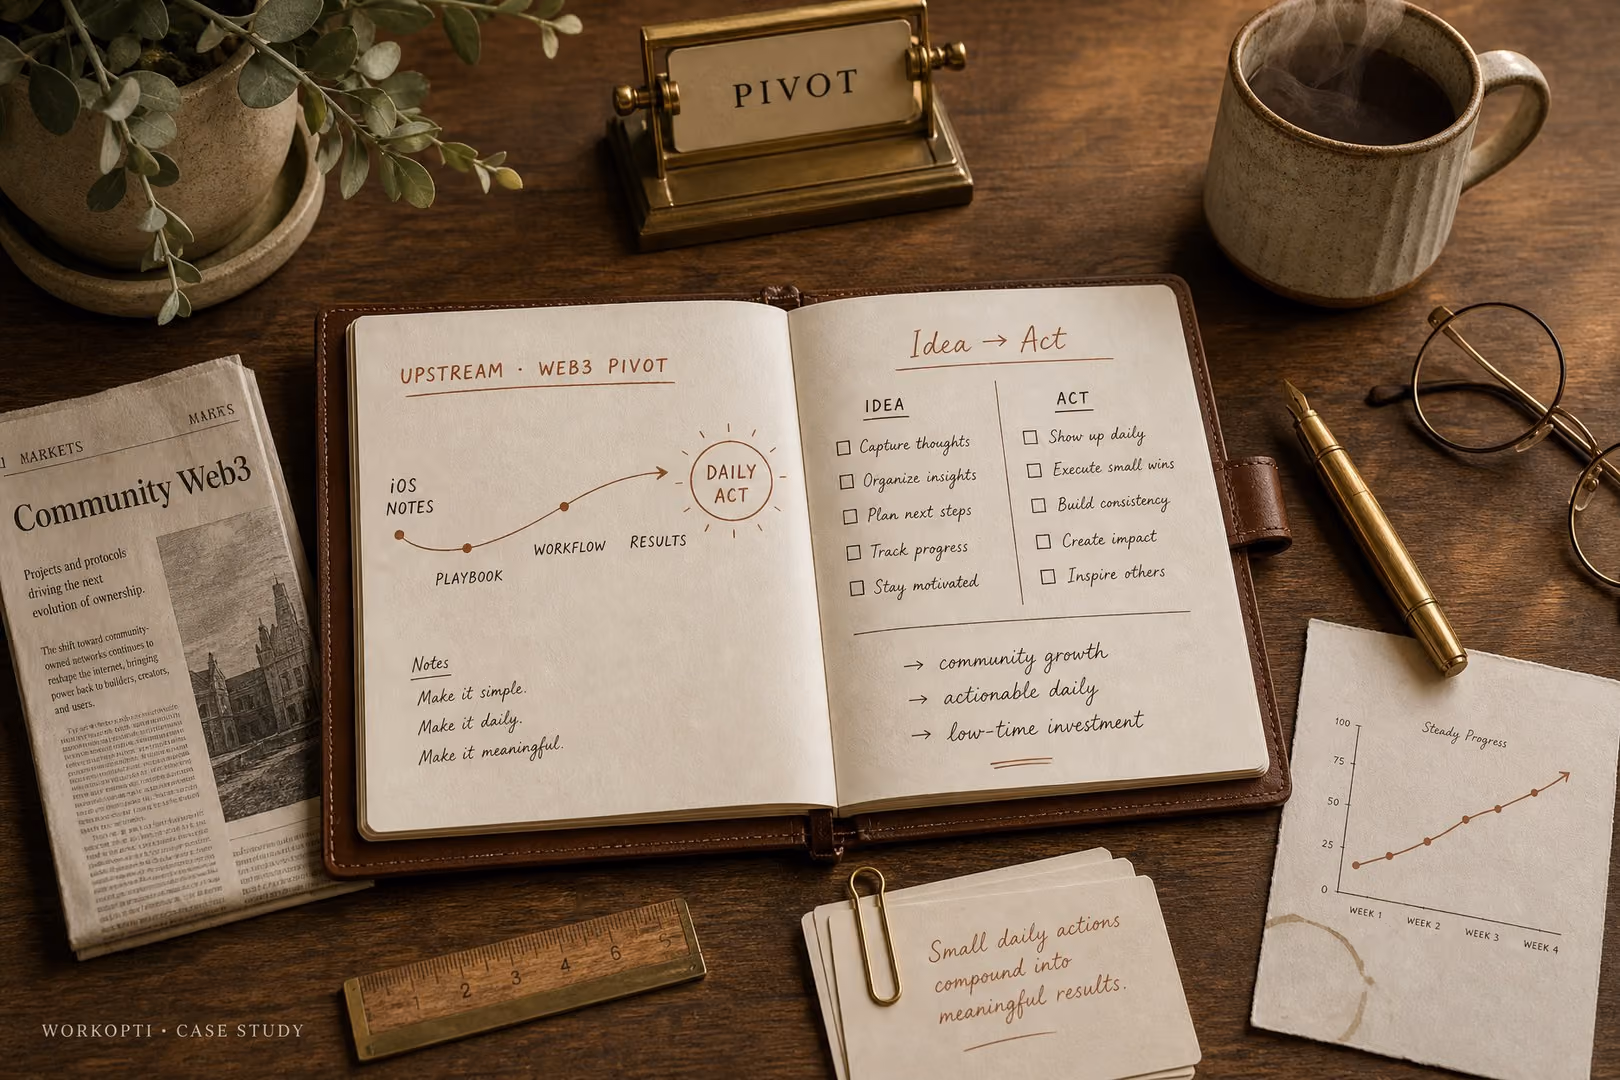 PIVOT
MARKETS
MARKS
Community Web3
Projects and protocols
driving the next
evolution of ownership.
The shift toward community-
owned networks continues to
reshape the internet, bringing
power back to builders, creators,
and users.
UPSTREAM · WEB3 PIVOT
iOS
NOTES
PLAYBOOK
WORKFLOW
RESULTS
DAILY
ACT
Notes
Make it simple.
Make it daily.
Make it meaningful.
Idea → Act
IDEA
Capture thoughts
Organize insights
Plan next steps
Track progress
Stay motivated
ACT
Show up daily
Execute small wins
Build consistency
Create impact
Inspire others
→ community growth
→ actionable daily
→ low-time investment
Steady Progress
100
75
50
25
0
WEEK 1
WEEK 2
WEEK 3
WEEK 4
1 2 3 4 6 5
Small daily actions
compound into
meaningful results.
WORKOPTI · CASE STUDY